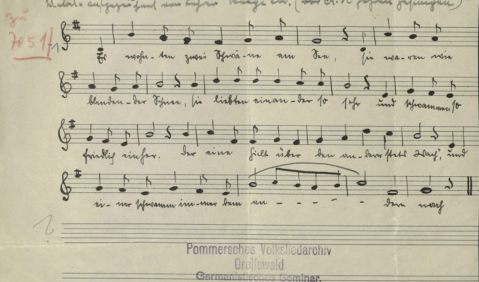 zu
7051/1
Es wohn-ten zwei Schwäne am See, sie wa-ren wie
blenden-der Schnee, sie liebten einan-der so sehr und schwammen so
friedlich einher. Der eine hielt über den an-dern stets Wach', und
ei-ner schwamm im-mer dem an - - - - - dern nach
Pommersches Volksliedarchiv
Greifswald
Germanistisches Seminar.